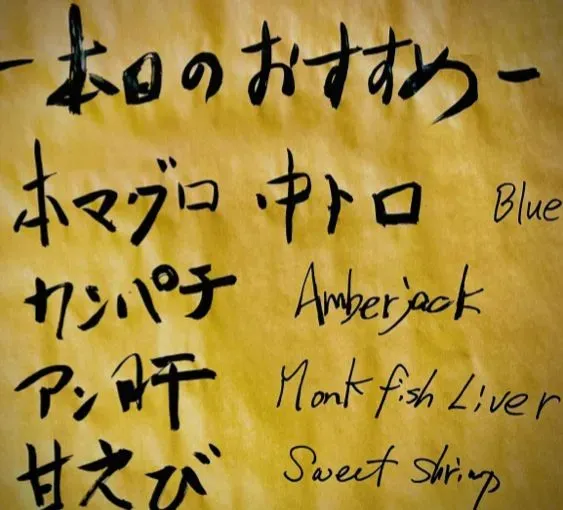 ー本日のおすすめー
本マグロ 中トロ Blue
カンパチ Amberjack
アン肝 Monkfish Liver
甘えび Sweet shrimp